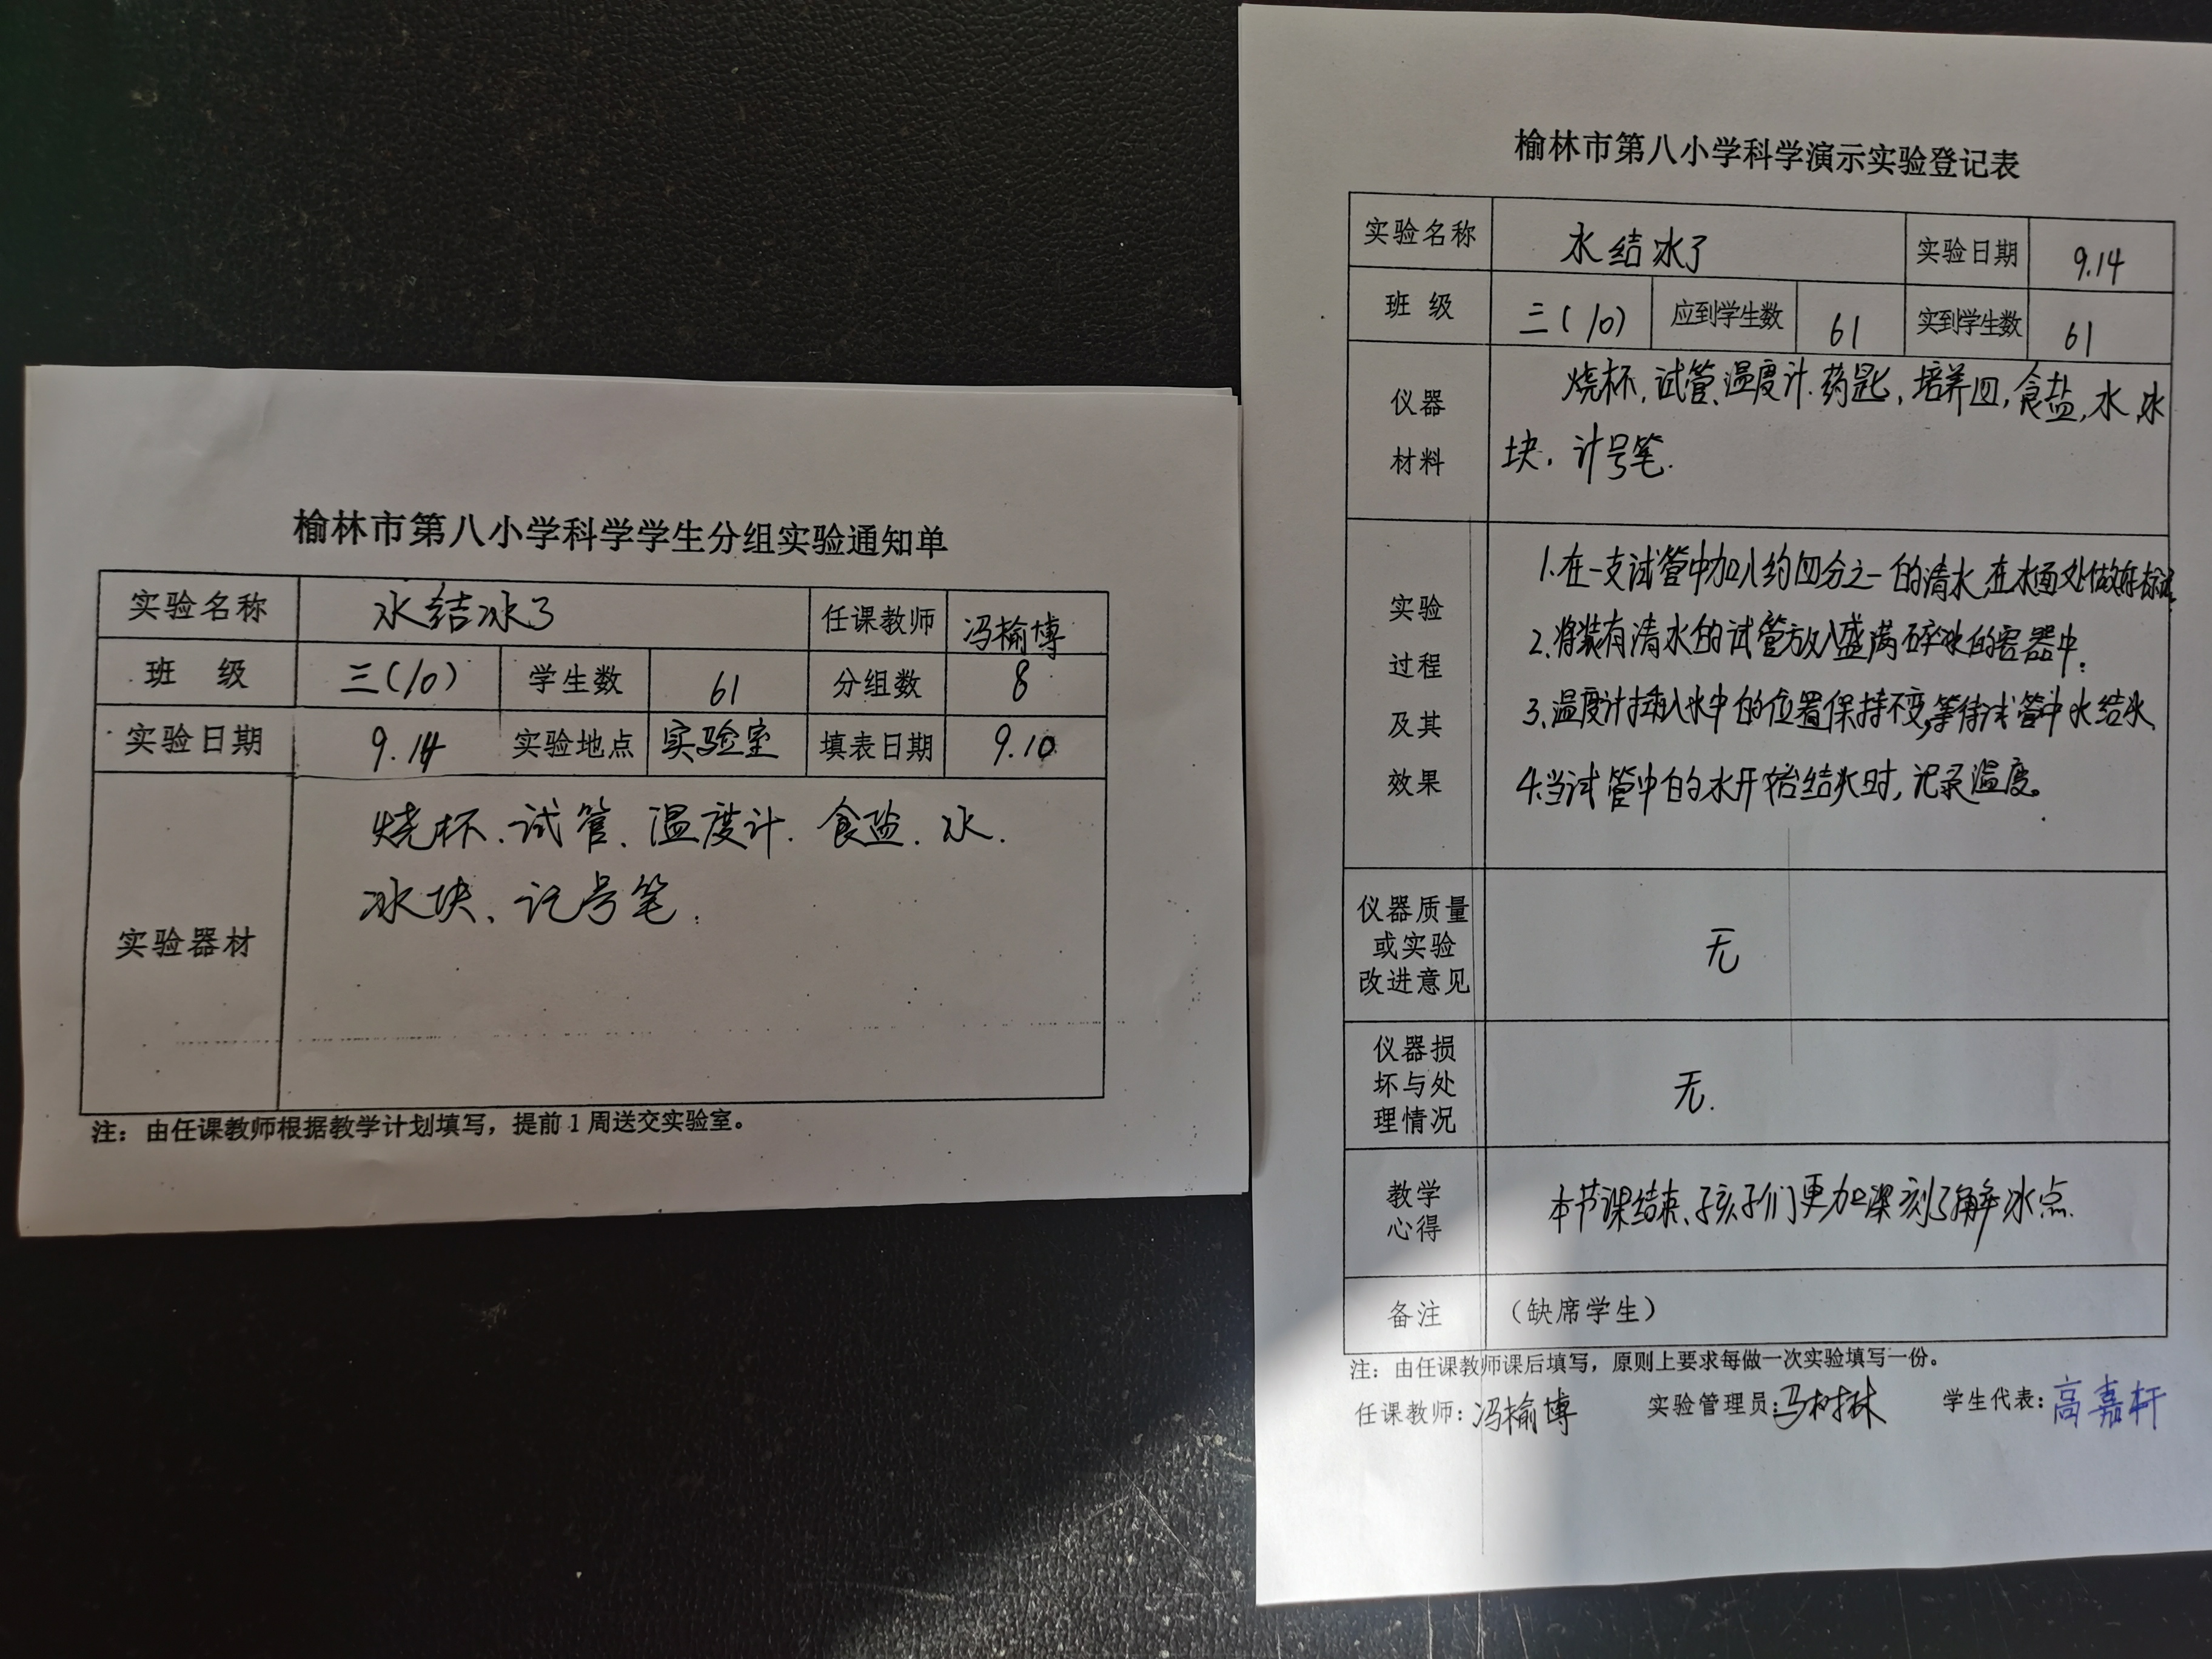 榆林市第八小学科学学生分组实验通知单
实验名称 水结冰了 任课教师 冯榆博
班 级 三(10) 学生数 61 分组数 8
实验日期 9.14 实验地点 实验室 填表日期 9.10
实验器材
烧杯、试管、温度计、食盐、水、
冰块、记号笔.
注：由任课教师根据教学计划填写，提前1周送交实验室。
榆林市第八小学科学演示实验登记表
实验名称 水结冰了 实验日期 9.14
班 级 三(10) 应到学生数 61 实到学生数 61
仪器
材料
烧杯,试管、温度计.药匙,培养皿,食盐,水,冰
块,计号笔.
实验
过程
及其
效果
1.在一支试管中加入约四分之一的清水,在水面处做好标记。
2.将装有清水的试管放入盛满碎冰的容器中;
3.温度计插入水中的位置保持不变,等待试管中水结冰.
4.当试管中的水开始结冰时,记录温度。
仪器质量
或实验
改进意见
无
仪器损
坏与处
理情况
无.
教学
心得
本节课结束、孩子们更加深刻了解冰点.
备注 （缺席学生）
注：由任课教师课后填写，原则上要求每做一次实验填写一份。
任课教师：冯榆博 实验管理员：马树林 学生代表：高嘉轩